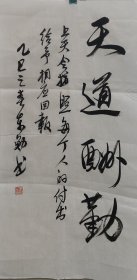 天道酬勤
上天会按照每个人的付出
给予相应回报
乙巳之春东勉书